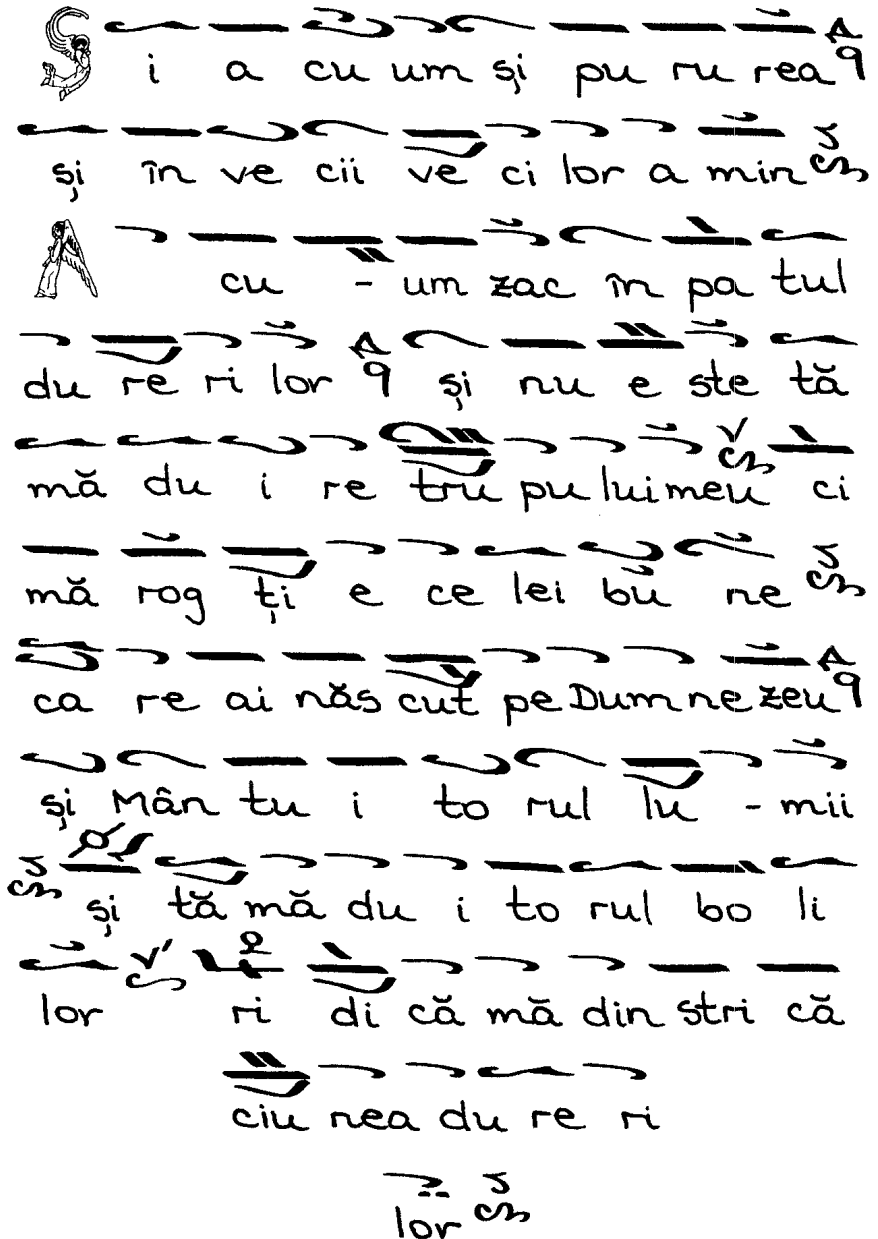 Și a cu um și pu ru rea
și în ve cii ve ci lor a min
A cu - um zac în pa tul
du re ri lor și nu e ste tă
mă du i re tru pu lui meu ci
mă rog ți e ce lei bu ne
ca re ai năs cut pe Dum ne zeu
și Mân tu i to rul lu - mii
și tă mă du i to rul bo li
lor ri di că mă din stri că
ciu nea du re ri
lor